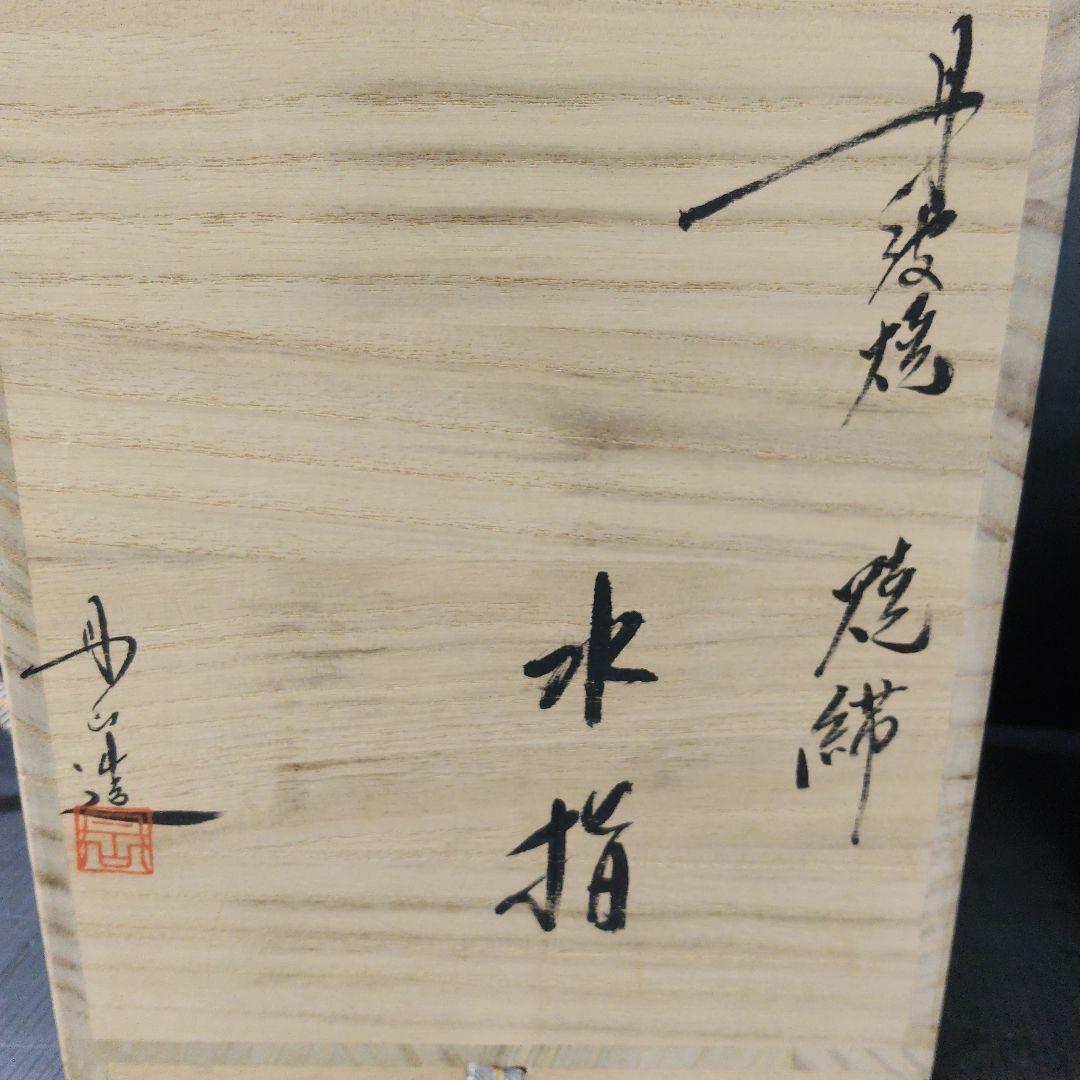 丹波焼 焼締
水指
丹山造